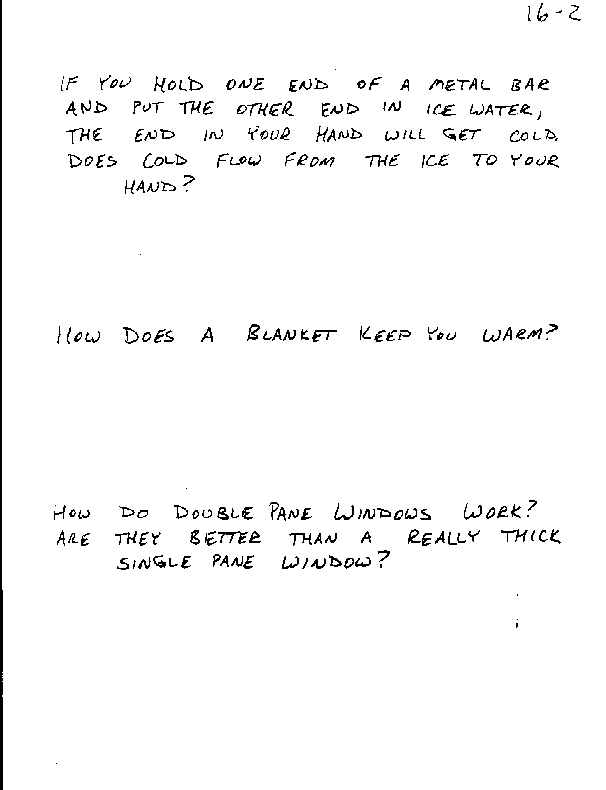 16-2
IF YOU HOLD ONE END OF A METAL BAR
AND PUT THE OTHER END IN ICE WATER,
THE END IN YOUR HAND WILL GET COLD.
DOES COLD FLOW FROM THE ICE TO YOUR
HAND?
HOW DOES A BLANKET KEEP YOU WARM?
HOW DO DOUBLE PANE WINDOWS WORK?
ARE THEY BETTER THAN A REALLY THICK
SINGLE PANE WINDOW?